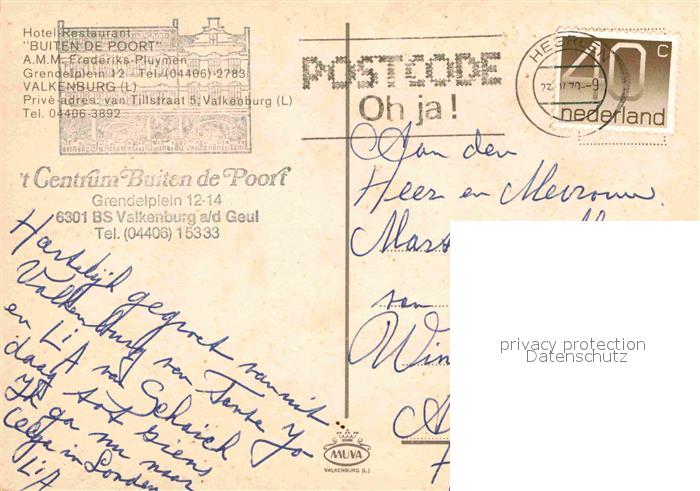 Hotel-Restaurant
"BUITEN DE POORT"
A.M.M. Frederiks-Pluymen
Grendelplein 12 - Tel. (04406)-2783
VALKENBURG (L)
Privé-adres: van Tillstraat 5, Valkenburg (L)
Tel. 04406-3892
't Centrum Buiten de Poort
Grendelplein 12-14
6301 BS Valkenburg a/d Geul
Tel. (04406) 15333
Hartelijk gegroet vanuit
Valkenburg van Tante Jo
en LiA v Schaick
daag tot ziens
Ik ga nu naar
in Londen
LiA
POSTCODE
Oh ja!
HEERLEN
40 c
nederland
Aan den
Heer en Mevrouw
van
MUVA
VALKENBURG (L.)
privacy protection
Datenschutz